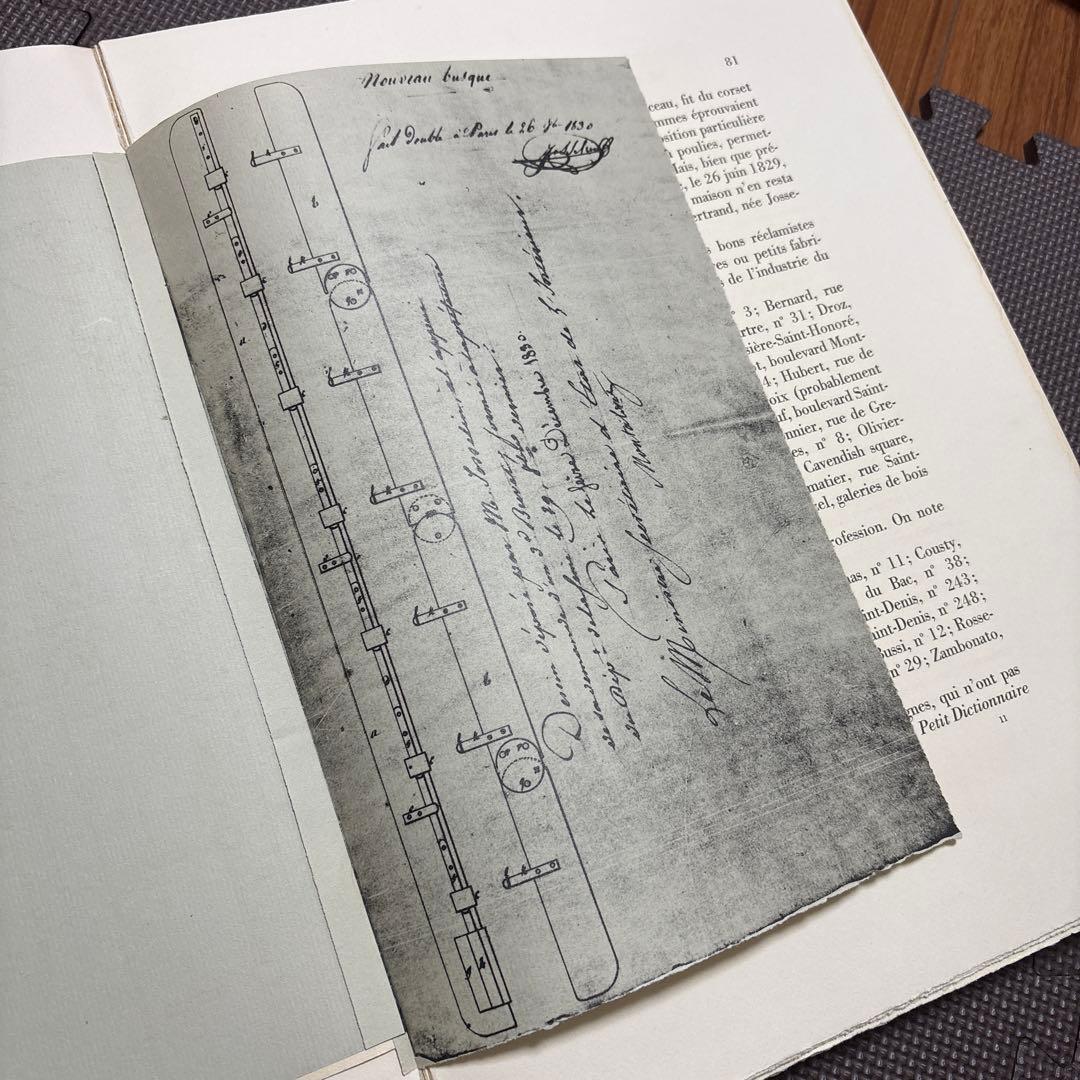 Nouveau busque
fait double à Paris le 26 1830
Dessin déposé par M. Josselin à l'appui
de sa demande d'un de Brevet
du 29 Décembre 1830.
Paris Le
Le Ministre Secrétaire d'Etat de
Montalivet
81
ceau, fit du corset
mmes éprouvaient
sition particulière
poulies, permet-
lais, bien que pré-
, le 26 juin 1829,
maison n'en resta
ertrand, née Josse-
bons réclamistes
es ou petits fabri-
de l'industrie du
° 3; Bernard, rue
rtre, n° 31; Droz,
sière-Saint-Honoré,
t, boulevard Mont-
4; Hubert, rue de
oix (probablement
uf, boulevard Saint-
nnier, rue de Gre-
es, n° 8; Olivier-
Cavendish square,
matier, rue Saint-
el, galeries de bois
ofession. On note
nas, n° 11; Cousty,
du Bac, n° 38;
int-Denis, n° 243;
aint-Denis, n° 248;
ussi, n° 12; Rosse-
n° 29; Zambonato,
nes, qui n'ont pas
Petit Dictionnaire
11